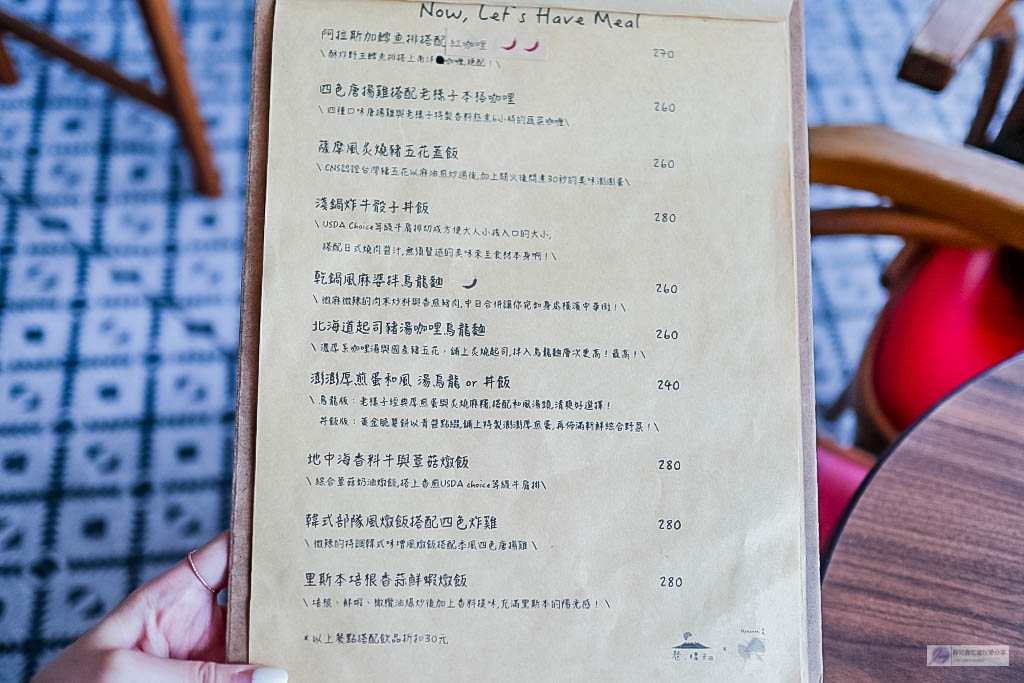 Now, Let's Have Meal
阿拉斯加鱈魚排搭配 紅咖哩 270
\ 酥炸野生鱈魚排搭上南洋 咖哩,絕配!\
四色唐揚雞搭配老樣子本格咖哩 260
\ 四種口味唐揚雞與老樣子特製香料熬煮6小時的蔬菜咖哩\
薩摩風炙燒豬五花蓋飯 260
\ CNS認證台灣豬五花以麻油煎炒過後,加上關火後悶煮30秒的美味澎澎蛋\
淺鍋炸牛骰子丼飯 280
\ USDA Choice等級牛肩排切成方便大人小孩入口的大小,
搭配日式燒肉醬汁,無須贅述的美味來至食材本身啊!\
乾鍋風麻婆拌烏龍麵 260
\ 微麻微辣的肉末炒料與香煎豬肉,中日合併讓你宛如身處橫濱中華街!\
北海道起司豬湯咖哩烏龍麵 260
\ 濃厚系咖哩湯與國產豬五花,鋪上炙燒起司,拌入烏龍麵層次更高!最高!\
澎澎厚煎蛋和風 湯烏龍 or 丼飯 240
\ 烏龍版:老樣子經典厚煎蛋與炙燒麻糬,搭配和風湯頭,清爽好選擇!
丼飯版:黃金脆薯餅以青醬點綴,鋪上特製澎澎厚煎蛋,再佈滿新鮮綜合野菜!\
地中海香料牛與蕈菇燉飯 280
\ 綜合蕈菇奶油燉飯,搭上香煎USDA choice等級牛肩排\
韓式部隊風燉飯搭配四色炸雞 280
\ 微辣的特調韓式味噌風燉飯搭配本風四色唐揚雞 \
里斯本培根香蒜鮮蝦燉飯 280
\ 培根、鮮蝦、橄欖油爆炒後加上香料提味,充滿里斯本的陽光感!\
*以上餐點搭配飲品折扣30元
老樣子 x